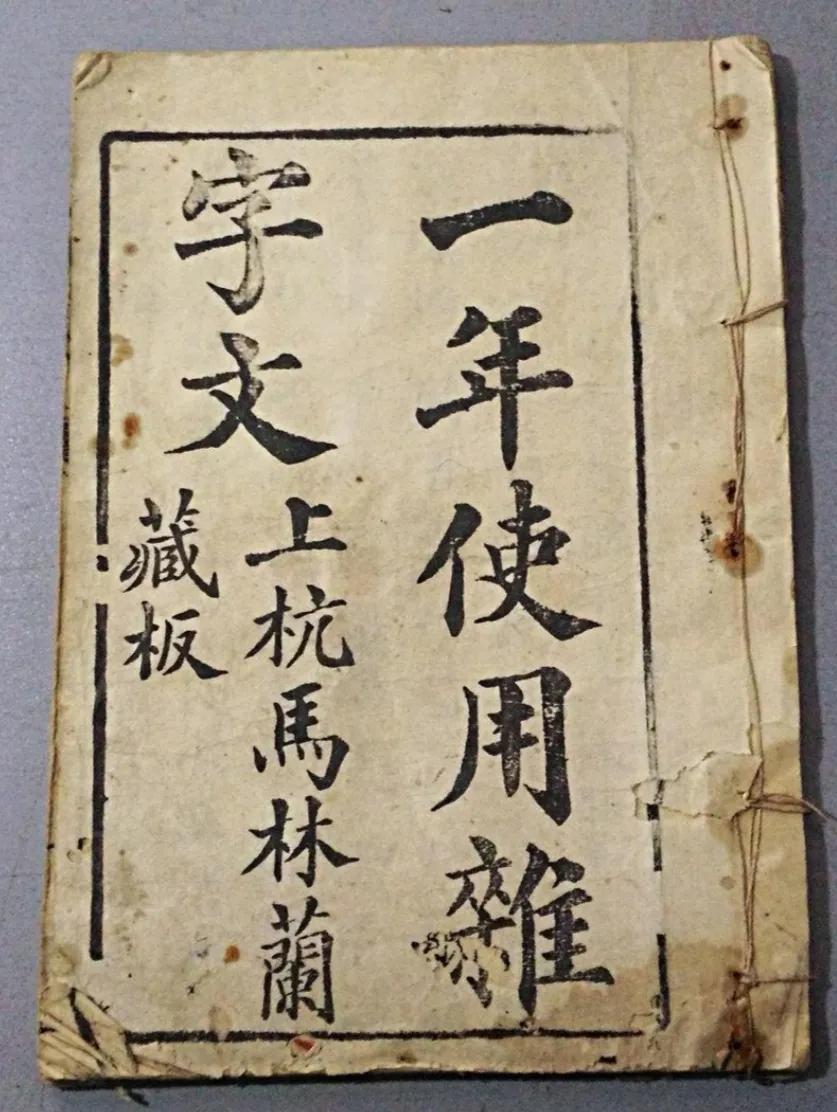 一年使用雜
字文
上杭馬林蘭
藏板